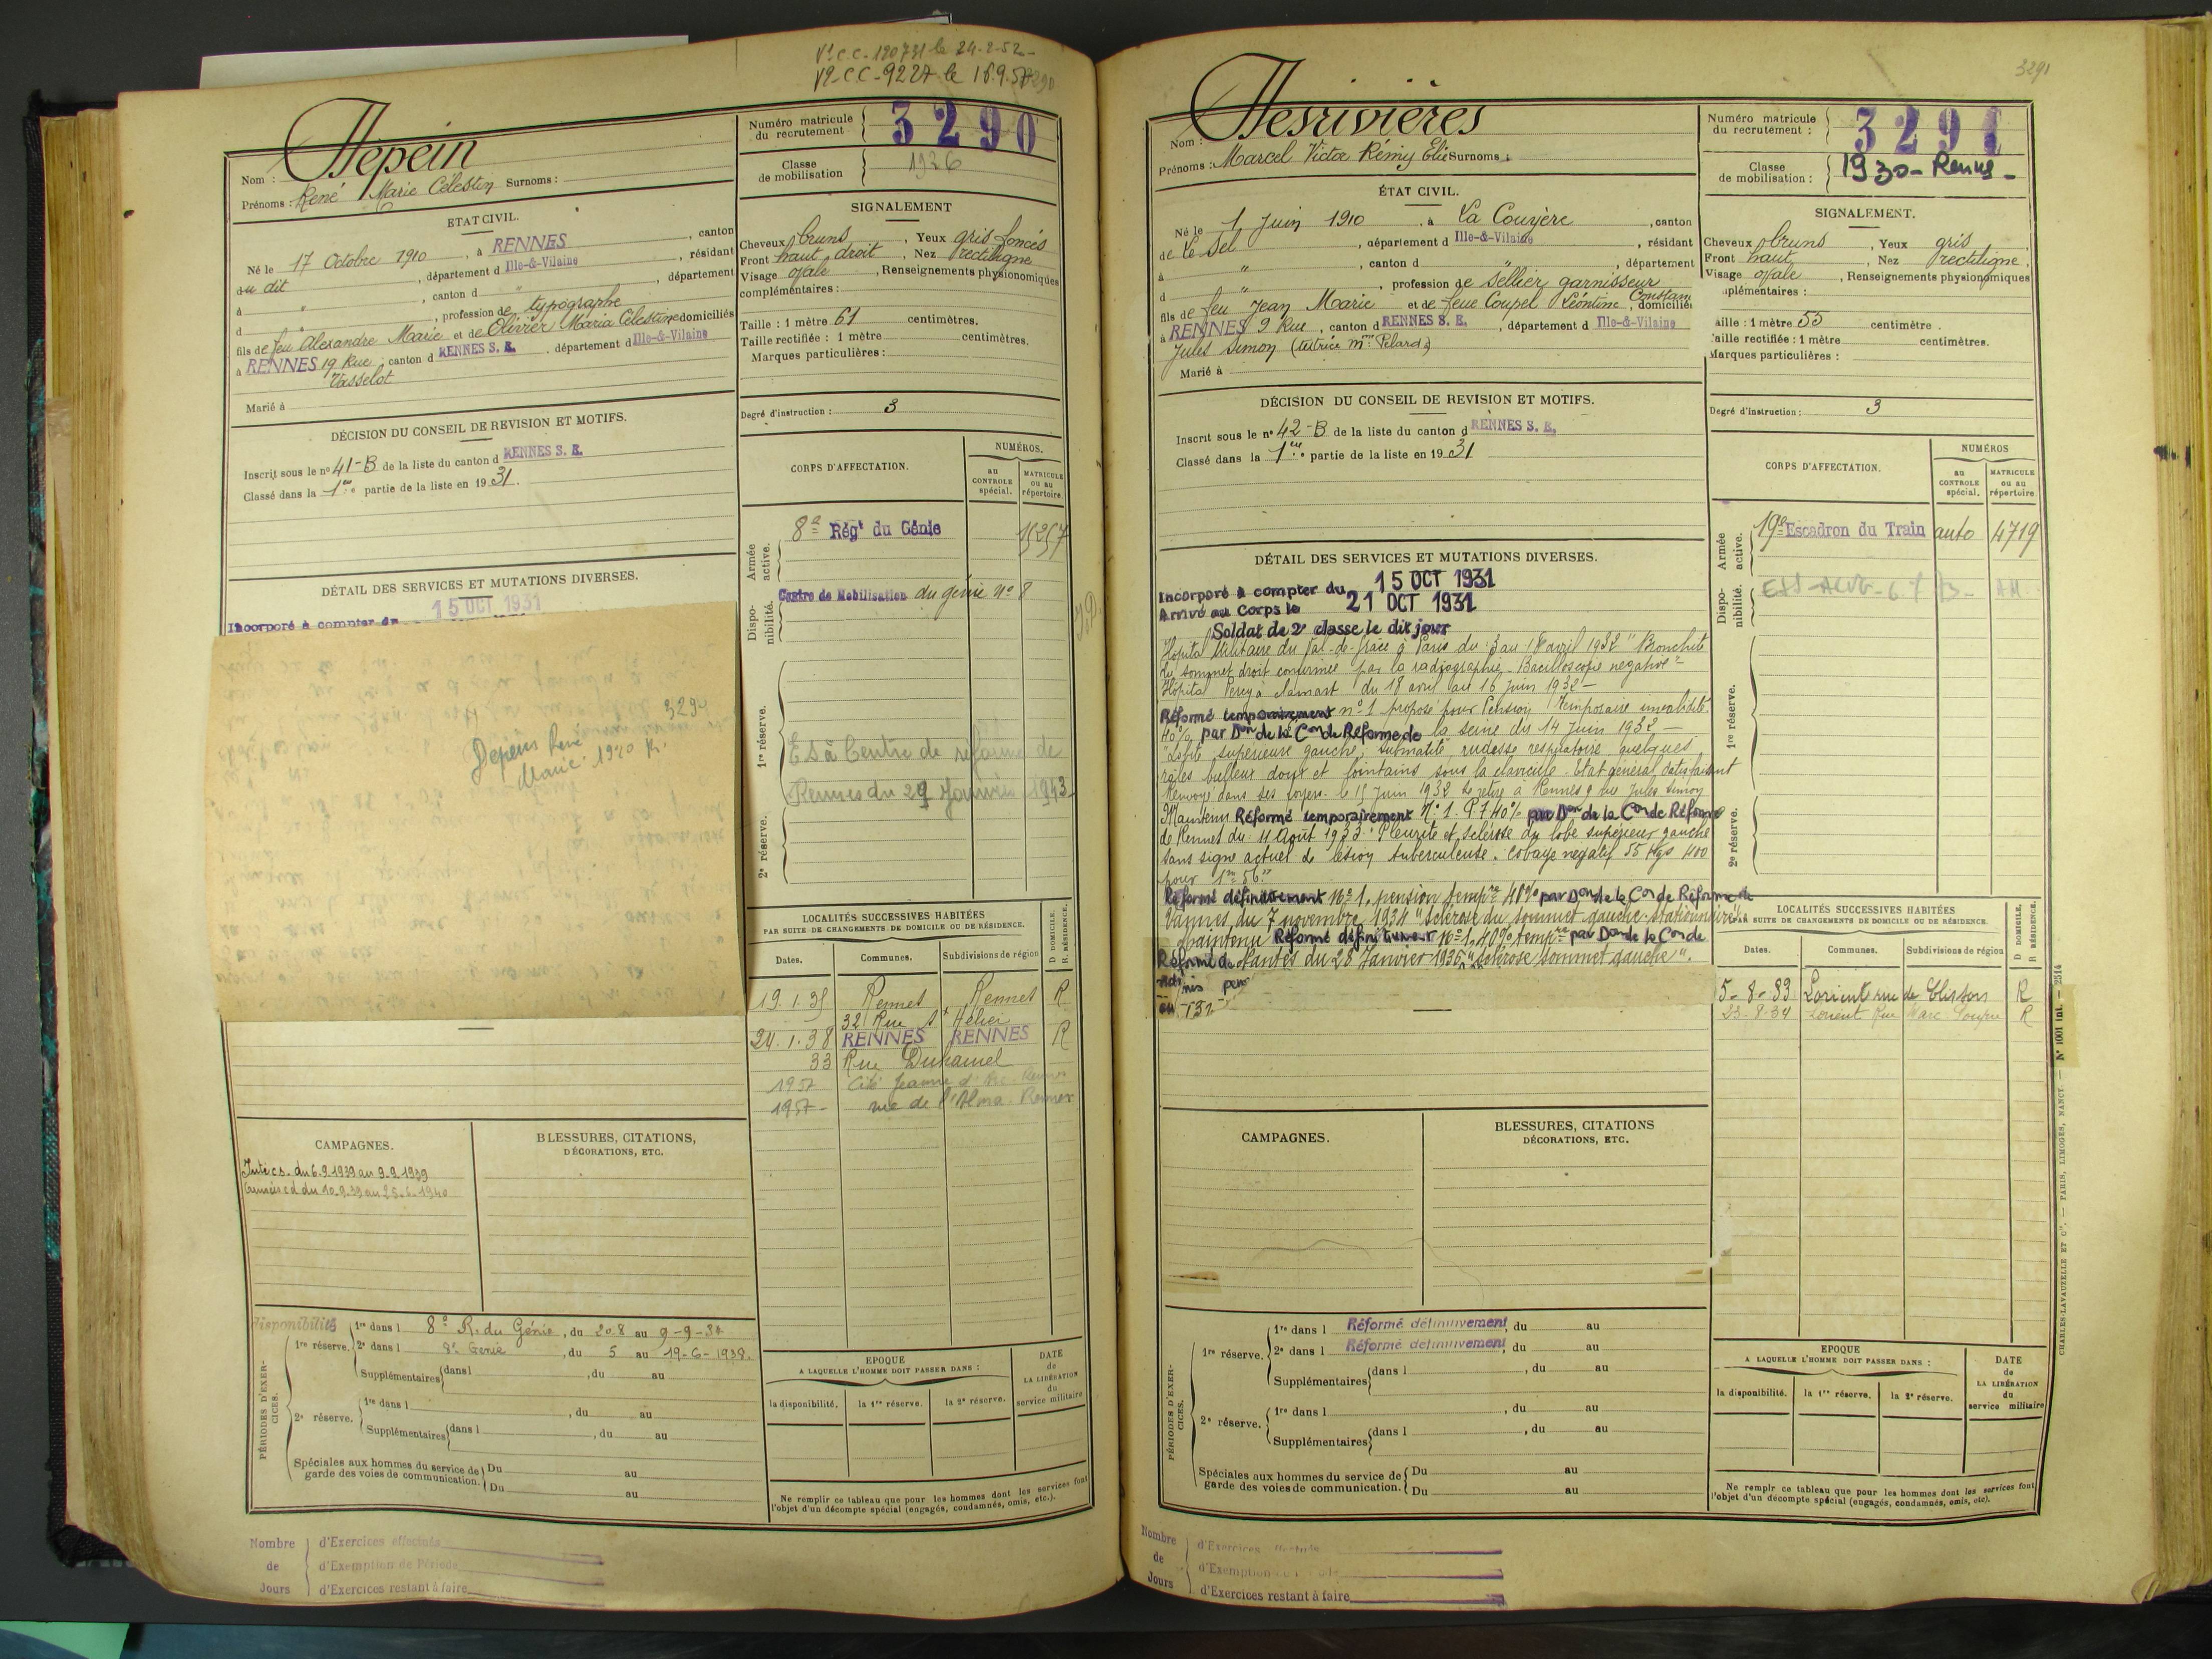 Vº C.C. 120731 le 24-2-52-
Vº C.C-9227 le 16.9.57
3290
Nom : Depein
Prénoms : René Marie Célestin Surnoms :
Numéro matricule du recrutement 3290
Classe de mobilisation 1926
ETAT CIVIL.
Né le 17 Octobre 1910, à RENNES, canton
du dit, département d Ille-&-Vilaine, résidant
à ", canton d ", département
d ", profession de typographe
fils de feu Alexandre Marie et de Olivier Maria Célestine domiciliés
à RENNES 19 Rue, canton d RENNES S. E., département d Ille-&-Vilaine
Vasselot
Marié à
SIGNALEMENT
Cheveux bruns, Yeux gris foncés
Front haut, droit, Nez rectiligne
Visage ovale, Renseignements physionomiques
complémentaires :
Taille : 1 mètre 61 centimètres.
Taille rectifiée : 1 mètre centimètres.
Marques particulières :
Degré d'instruction : 3
DÉCISION DU CONSEIL DE REVISION ET MOTIFS.
Inscrit sous le nº 41-B de la liste du canton d RENNES S. E.
Classé dans la 1ere partie de la liste en 1931.
DÉTAIL DES SERVICES ET MUTATIONS DIVERSES.
15 OCT 1931
Incorporé à compter du
3290
Depein René
Marie 1910 R.
CORPS D'AFFECTATION.
NUMÉROS.
au CONTROLE spécial.
MATRICULE ou au répertoire
Armée active.
8e Régt du Génie
Dispo-nibilité.
Centre de Mobilisation du génie nº 8
1re réserve.
Es à Centre de réforme de
Rennes du 29 Janvier 1943
2e réserve.
LOCALITÉS SUCCESSIVES HABITÉES
PAR SUITE DE CHANGEMENTS DE DOMICILE OU DE RÉSIDENCE.
Dates. Communes. Subdivisions de région D DOMICILE. R RÉSIDENCE.
19.1.35 Rennes Rennes R
32 Rue St Hélier
24.1.38 RENNES RENNES R
33 Rue Duhamel
1952 Cité Jeanne d'Arc-Rennes
1957- rue de l'Alma-Rennes
CAMPAGNES.
BLESSURES, CITATIONS,
DÉCORATIONS, ETC.
Intr c.s. du 6.9.1939 au 9.9.1939
Armées cd du 10.9.39 au 25.6.1940
PÉRIODES D'EXER-CICES.
disponibilité 1re dans l 8e R. du Génie, du 20.8 au 9-9-34
1re réserve. 2e dans l 8e Génie, du 5 au 19-6-1938.
Supplémentaires dans l, du au
1re dans l, du au
2e réserve.
Supplémentaires dans l, du au
Spéciales aux hommes du service de Du au
garde des voies de communication. Du au
EPOQUE
A LAQUELLE L'HOMME DOIT PASSER DANS :
la disponibilité. la 1re réserve. la 2e réserve.
DATE de LA LIBÉRATION du service militaire
Ne remplir ce tableau que pour les hommes dont les services font
l'objet d'un décompte spécial (engagés, condamnés, omis, etc.).
Nombre d'Exercices effectués
de d'Exemption de Période
Jours d'Exercices restant à faire
3291
Nom : Desrivières
Prénoms : Marcel Victor Rémy Elie Surnoms :
Numéro matricule du recrutement : 3291
Classe de mobilisation : 1930-Rennes-
ÉTAT CIVIL.
Né le 1 Juin 1910, à La Couyère, canton
de Le Sel, département d Ille-&-Vilaine, résidant
à ", canton d, département
d ", profession de sellier garnisseur
fils de feu Jean Marie et de feue Coupel Léontine Constan domiciliés
à RENNES 9 Rue, canton d RENNES S. E., département d Ille-&-Vilaine
Jules Simon (tutrice Mme Pelard)
Marié à
SIGNALEMENT.
Cheveux bruns, Yeux gris
Front haut, Nez rectiligne,
Visage ovale, Renseignements physionomiques
plémentaires :
aille : 1 mètre 55 centimètre.
aille rectifiée : 1 mètre centimètres.
Marques particulières :
Degré d'instruction : 3
DÉCISION DU CONSEIL DE REVISION ET MOTIFS.
Inscrit sous le nº 42-B de la liste du canton d RENNES S. E.
Classé dans la 1ere partie de la liste en 1931
DÉTAIL DES SERVICES ET MUTATIONS DIVERSES.
Incorporé à compter du 15 OCT 1931
Arrivé au Corps le 21 OCT 1931
Soldat de 2e classe le dit jour
Hôpital Militaire du Val-de-Grâce à Paris du 3 au 18 avril 1932 "Bronchite
du sommet droit confirmée par la radiographie. Bacilloscopie négative"-
Hôpital Percy à Clamart du 18 avril au 16 Juin 1932-
Réformé temporairement nº 1 proposé pour Pension temporaire invalidité
40% par Don de la Con de Réforme de la Seine du 14 Juin 1932-
"Lobite supérieure gauche, submatité rudesse respiratoire quelques
râles bulleux doux et lointains sous la clavicule. Etat général satisfaisant
Renvoyé dans ses foyers le 15 Juin 1932 se retire à Rennes 9 rue Jules Simon
Maintenu Réformé temporairement Nº 1. P.T 40% par Don de la Con de Réforme
de Rennes du 4 Août 1933 "Pleurite et sclérose du lobe supérieur gauche
sans signe actuel de lésion tuberculeuse. Cobaye négatif 55 Kgs 400
pour 1m 56"
Réformé définitivement Nº 1, pension tempre 40% par Don de la Con de Réforme de
Vannes du 7 novembre 1934 "Sclérose du sommet gauche stationnaire"
Maintenu Réformé définitivement Nº 1, 40% tempre par Don de la Con de
Réforme de Nantes du 28 Janvier 1936 "Sclérose sommet gauche".
CORPS D'AFFECTATION.
NUMÉROS
au CONTROLE spécial.
MATRICULE ou au répertoire
Armée active.
19e Escadron du Train auto 4719
Dispo-nibilité.
1re réserve.
2e réserve.
LOCALITÉS SUCCESSIVES HABITÉES
PAR SUITE DE CHANGEMENTS DE DOMICILE OU DE RÉSIDENCE.
Dates. Communes. Subdivisions de région D DOMICILE. R RÉSIDENCE.
5-8-33 Lorient rue de Clisson R
23-8-34 Lorient Rue R
CAMPAGNES.
BLESSURES, CITATIONS
DÉCORATIONS, ETC.
PÉRIODES D'EXER-CICES.
1re dans l Réformé définitivement, du au
1re réserve. 2e dans l Réformé définitivement, du au
Supplémentaires dans l, du au
1re dans l, du au
2e réserve.
Supplémentaires dans l, du au
Spéciales aux hommes du service de Du au
garde des voies de communication. Du au
EPOQUE
A LAQUELLE L'HOMME DOIT PASSER DANS :
la disponibilité. la 1re réserve. la 2e réserve.
DATE de LA LIBÉRATION du service militaire
Ne remplr ce tableau que pour les hommes dont les services font
l'objet d'un décompte spécial (engagés, condamnés, omis, etc).
CHARLES-LAVAUZELLE ET Cie. — PARIS, LIMOGES, NANCY. — Nº 1001 int. — 2514
Nombre d'Exercices
de d'Exemption
Jours d'Exercices restant à faire